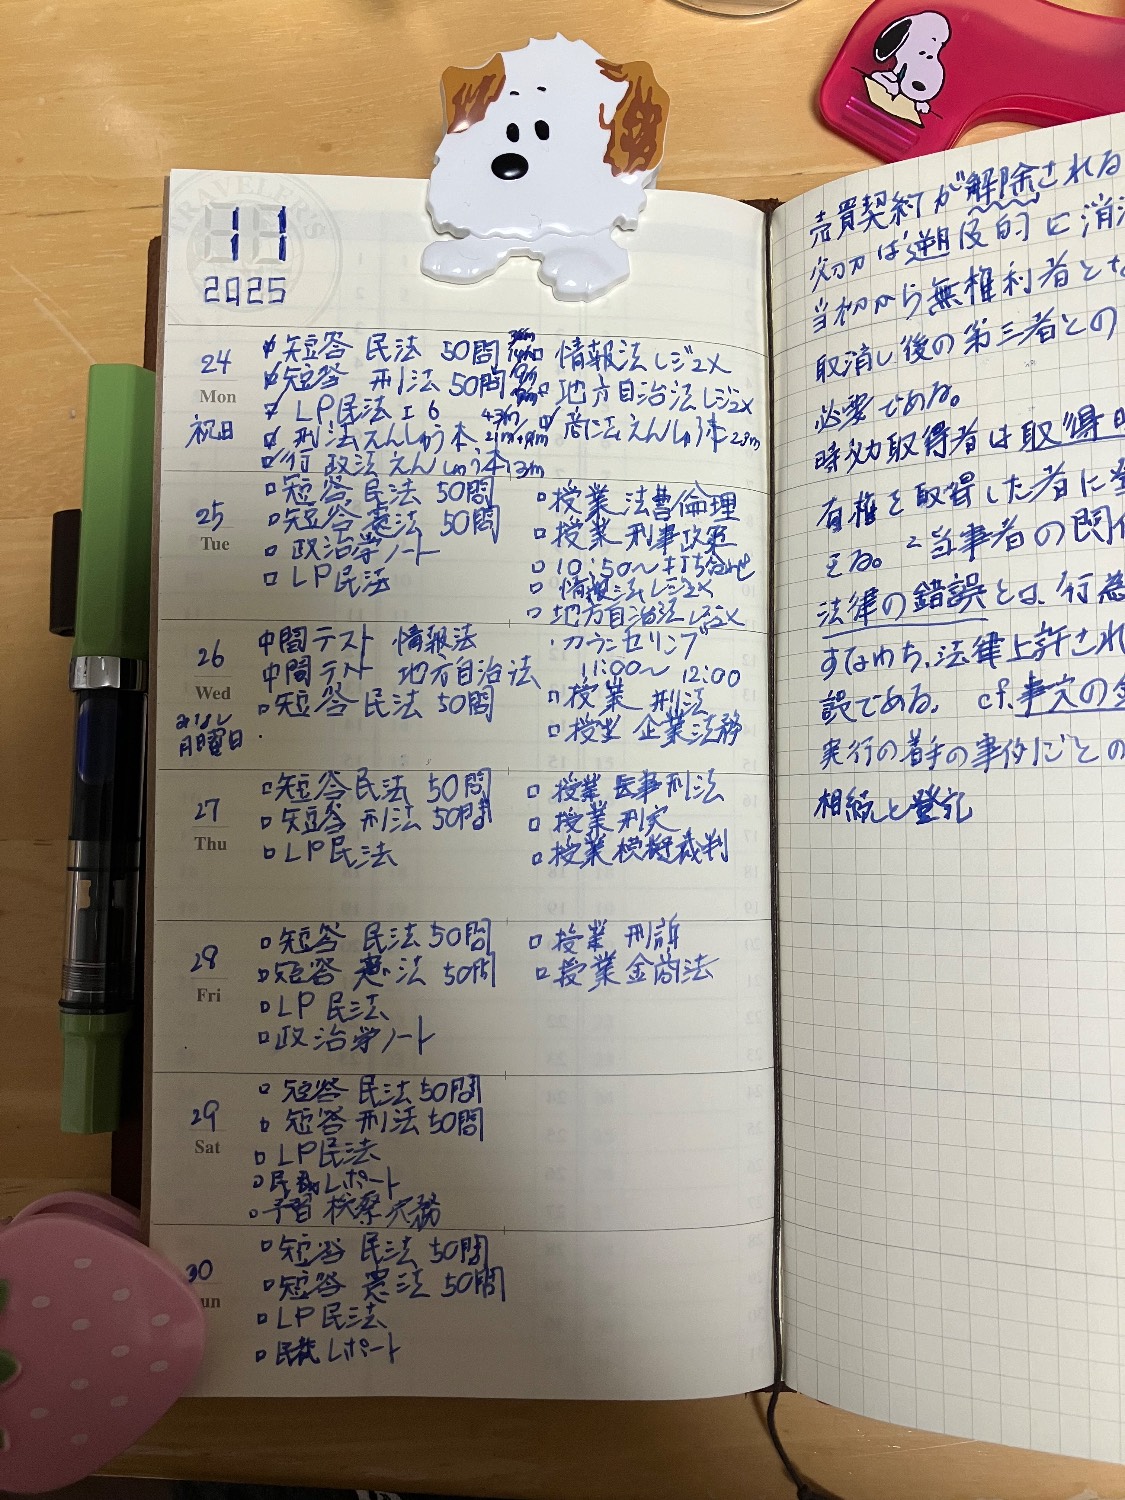 TRAVELER'S
11
2025
24
Mon
祝日
短答 民法 50問
短答 刑法 50問
LP民法 I 6 43m
刑法えんしゅう本
行政法えんしゅう本 13m
情報法レジュメ
地方自治法レジュメ
商法えんしゅう本 23m
25
Tue
短答 民法 50問
短答 憲法 50問
政治学ノート
LP民法
授業 法曹倫理
授業 刑事政策
10:50〜打ち合わせ
情報法レジュメ
地方自治法レジュメ
26
Wed
みなし
月曜日
中間テスト 情報法
中間テスト 地方自治法
短答 民法 50問
・カウンセリング
11:00〜 12:00
授業 刑法
授業 企業法務
27
Thu
短答 民法 50問
短答 刑法 50問
LP民法
授業 民事刑法
授業 刑実
授業 模擬裁判
28
Fri
短答 民法 50問
短答 憲法 50問
LP民法
政治学ノート
授業 刑訴
授業 金商法
29
Sat
短答 民法 50問
短答 刑法 50問
LP民法
レポート
予習 検察実務
30
un
短答 民法 50問
短答 憲法 50問
LP民法
民裁レポート
売買契約が解除される
効力は遡及的に消滅
当初から無権利者とな
取消し後の第三者との
必要である。
時効取得者は取得時
有権を取得した者に登
きる。∴当事者の関係
法律の錯誤とは、行為
すなわち、法律上許され
誤である。 cf.事実の錯
実行の着手の事例ごとの
相続と登記